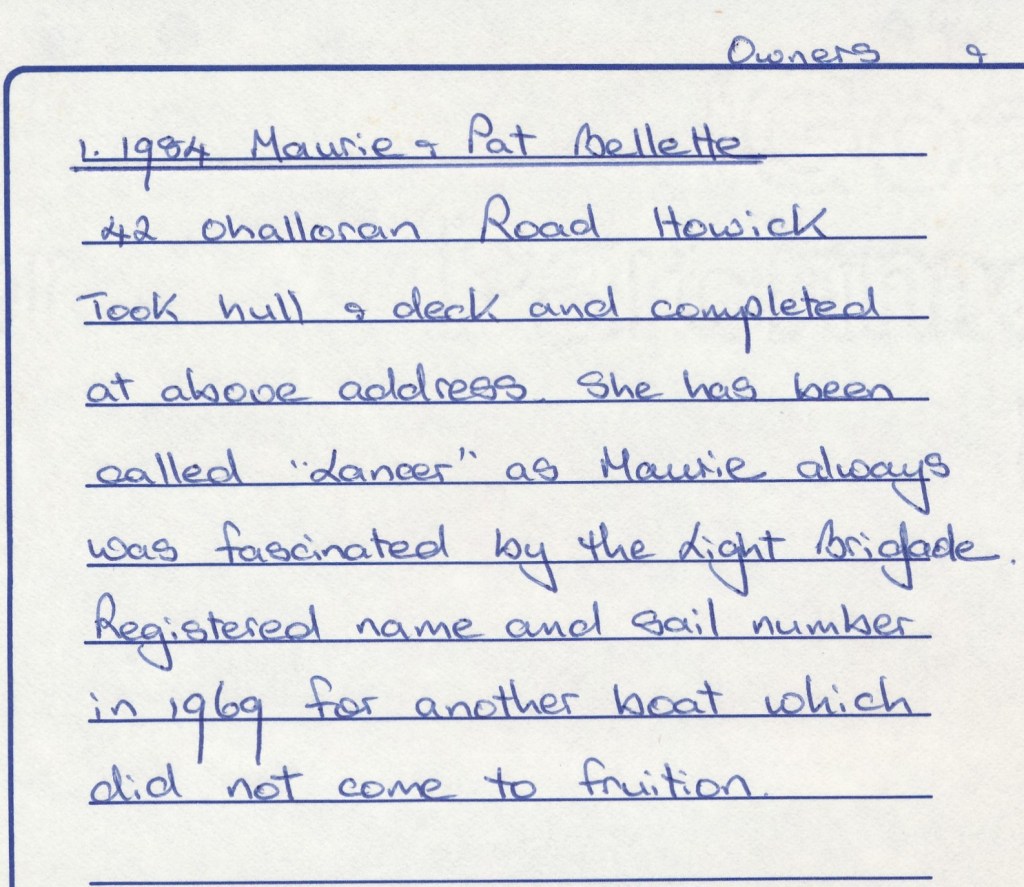 Owners &
1. 1984 Maurie & Pat Bellette
42 Ohalloran Road Howick
Took hull & deck and completed
at above address. She has been
called "Lancer" as Maurie always
was fascinated by the Light Brigade.
Registered name and sail number
in 1969 for another boat which
did not come to fruition.